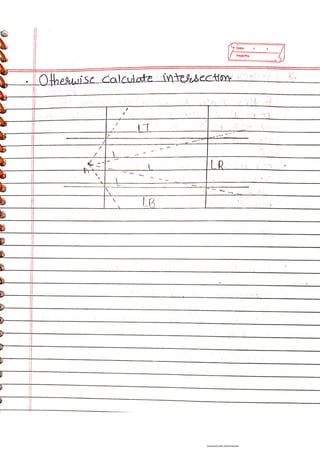 Date
. Otherwise calculate intersection
LT
L
L
LR
P1
L
LB
Scanned with CamScanner